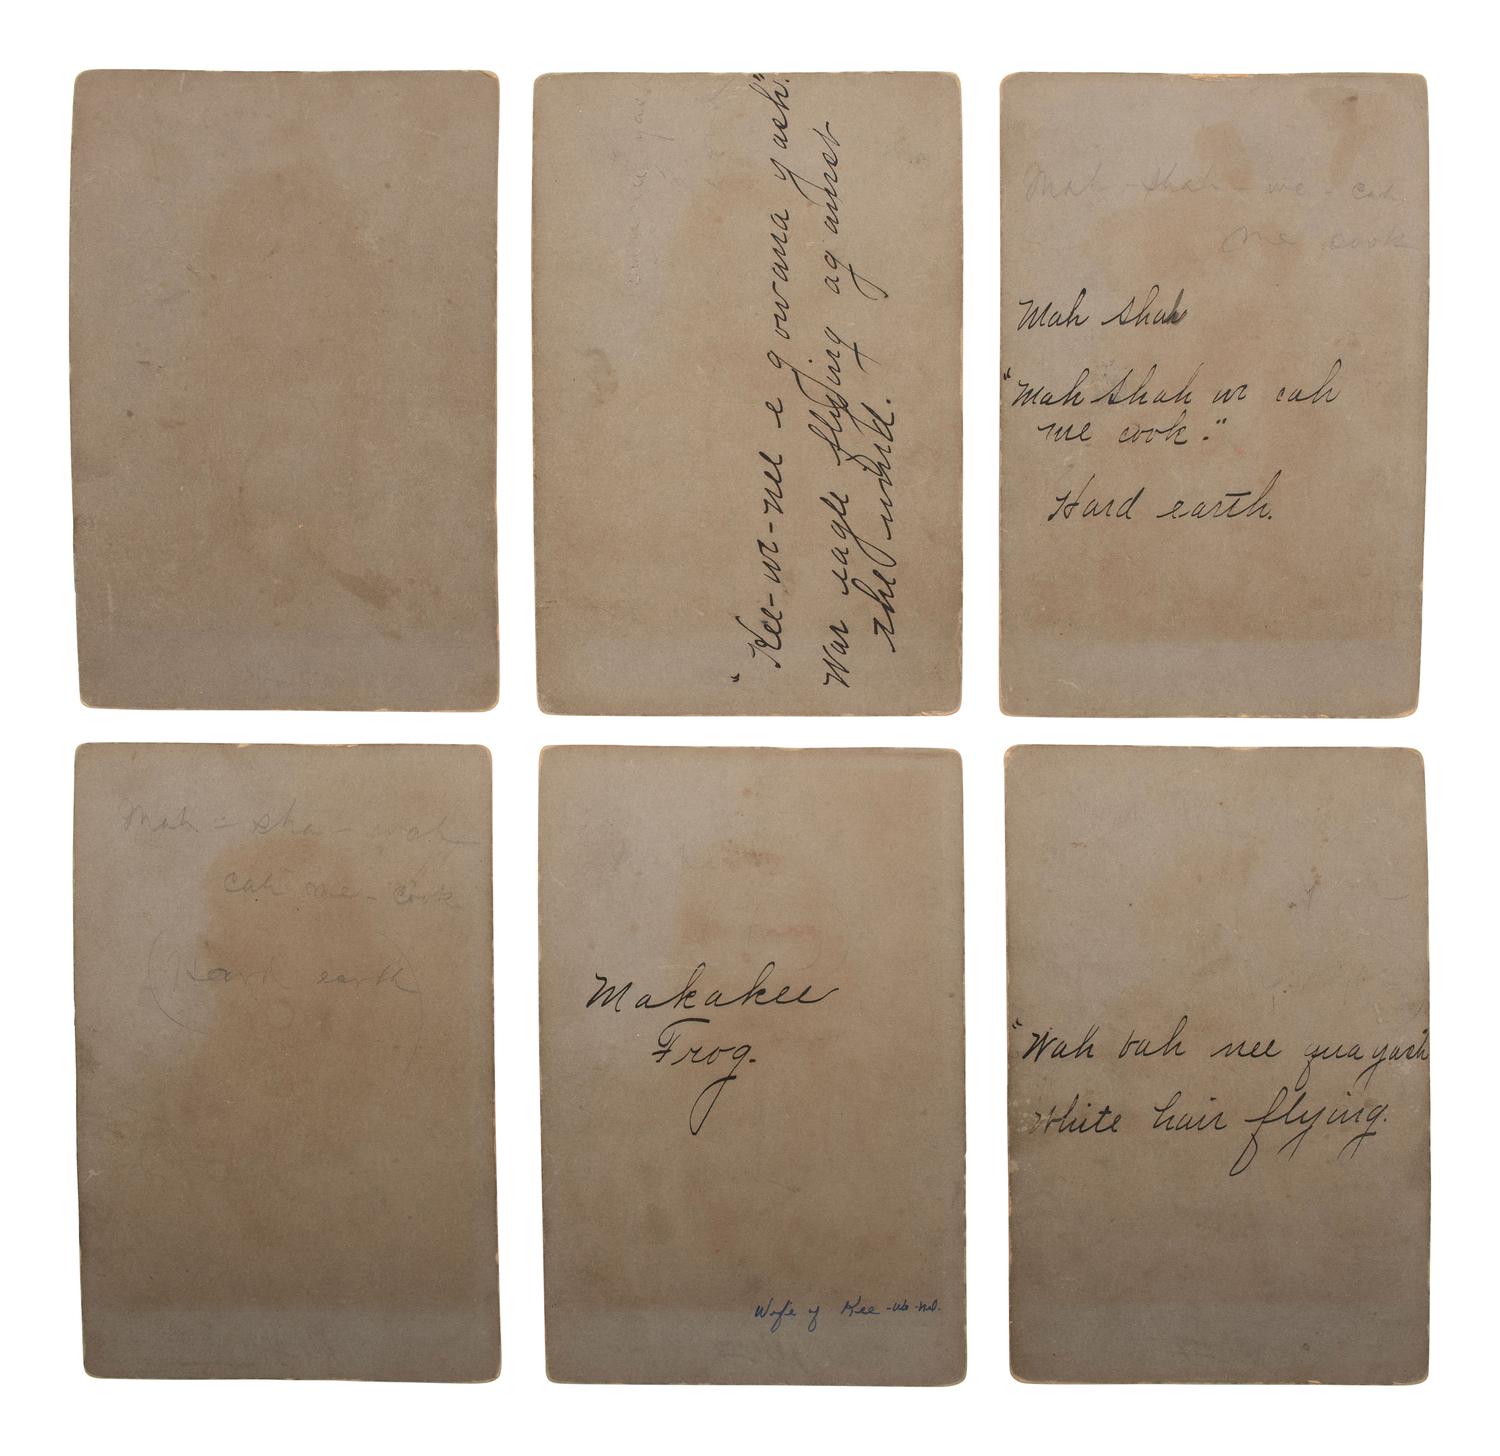 "Kee-we-nee e gowana yash."
War eagle flying against
the wind.
Mah-shah-we-cah
me cook
Mah shah
"Mah shah we cah
me cook."
Hard earth.
Mah-sha-wah
cah me-cook
(Hard earth)
Makakee
Frog.
Wife of Kee-we-nee.
"Wah bah nee qua yash"
White hair flying.